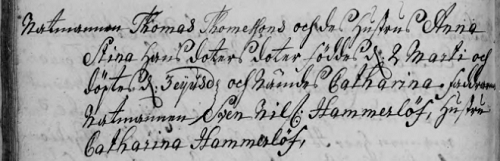 Natmannen Thomas Thomessons och des hustrus Anna
Stina Hans doters doter föddes d: 2 Marti och
döptes d: och nämdes Catharina. faddrarne
Natmannen Sven Nils: Hammerlöf, hustru
Catharina Hammerlöf,